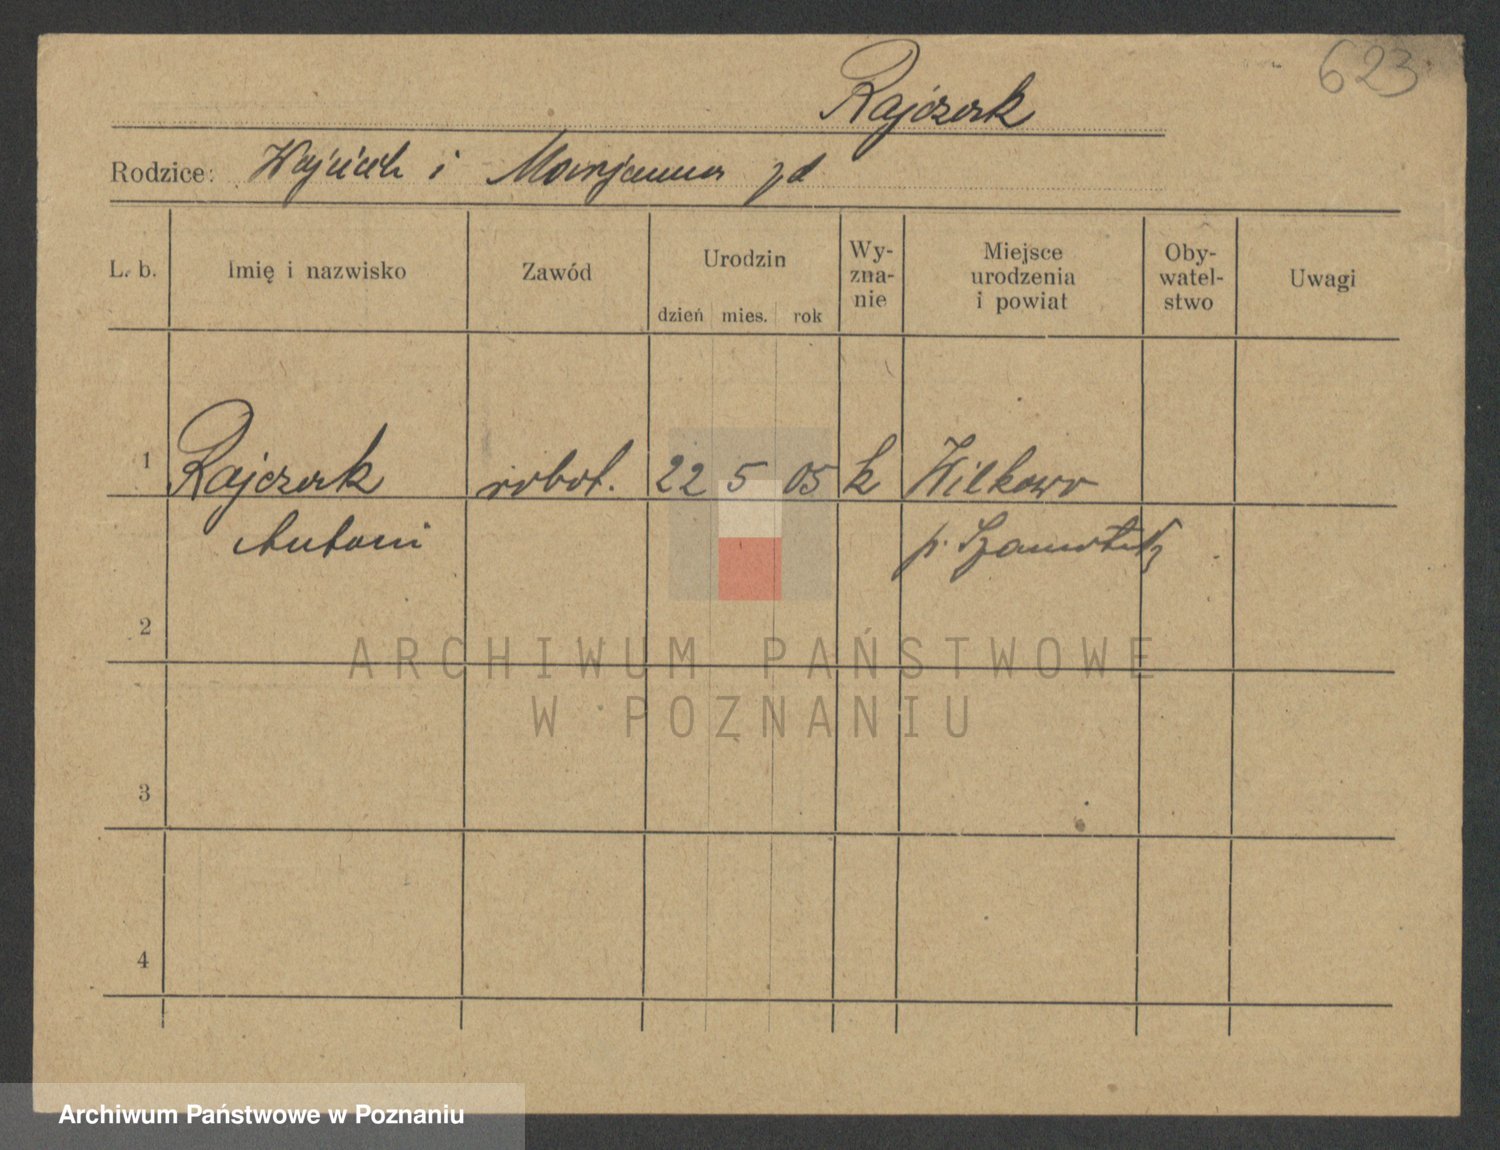 623
Rajczak
Rodzice: Wojciech i Marjanna zd
L. b. Imię i nazwisko Zawód Urodzin dzień mies. rok Wy-zna-nie Miejsce urodzenia i powiat Oby-watel-stwo Uwagi
1 Rajczak robot. 22 5 05 k Wilkowo
Antoni p. Szamotuły
2
ARCHIWUM PAŃSTWOWE
W POZNANIU
3
4
Archiwum Państwowe w Poznaniu